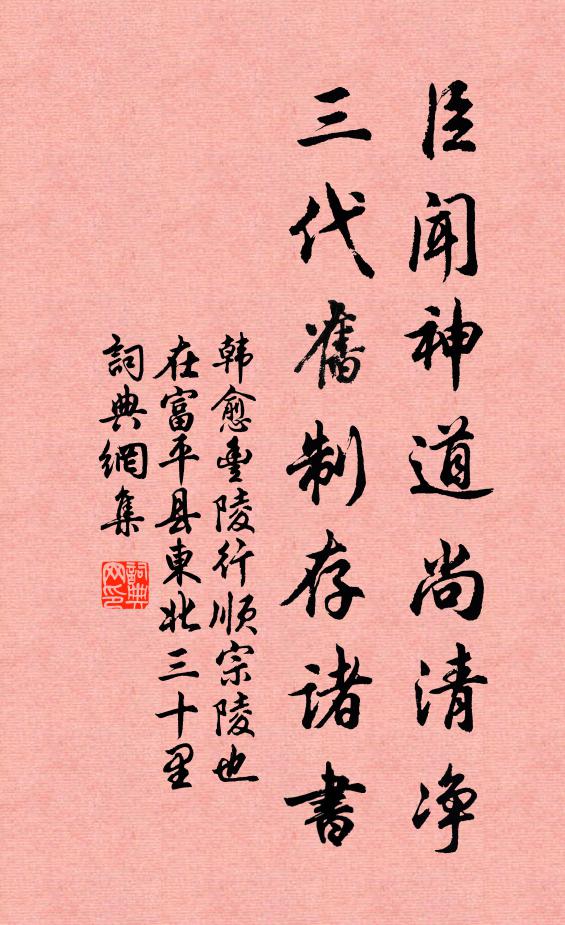 臣闻神道尚清净
三代舊制存诸書
韩愈豊陵行顺宗陵也
在富平县東北三十里
詞典網集
詞典网印